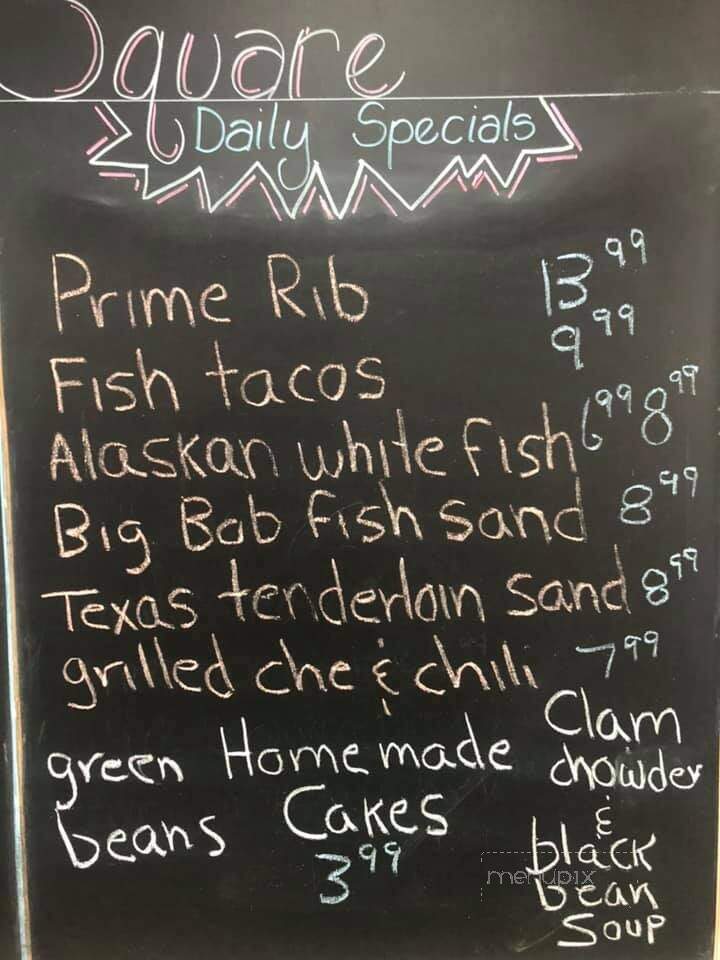 Square
Daily Specials
Prime Rib 13.99
Fish tacos 9.99
Alaskan white fish 6.99 8.99
Big Bob fish sand 8.99
Texas tenderloin sand 8.99
grilled che & chili 7.99
green beans
Home made Cakes
3.99
Clam
chowder
&
black
bean
soup
menupix